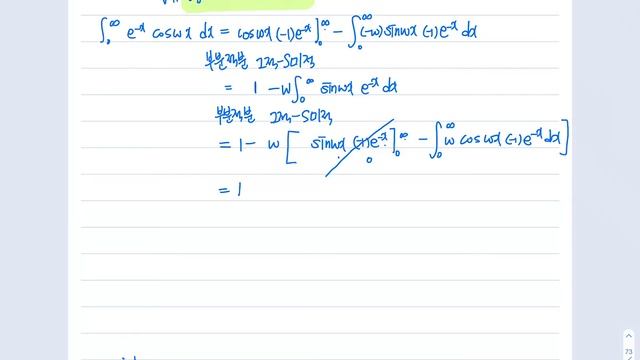 ∫₀^∞ e^{-x} cos wx dx = cos wx (-1)e^{-x}]₀^∞ - ∫₀^∞ (-w) sin wx (-1) e^{-x} dx
부분적분 그적-S미적
= 1 - w∫₀^∞ sin wx e^{-x} dx
부분적분 그적-S미적
= 1 - w [ sin wx (-1)e^{-x}]₀^∞ - ∫₀^∞ w cos wx (-1) e^{-x} dx ]
0
= 1
73